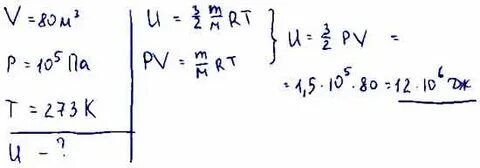 V = 80 м³
P = 10⁵ Па
T = 273 К
U - ?
U = 3/2 m/M RT
PV = m/M RT
} U = 3/2 PV =
= 1,5 · 10⁵ · 80 = 12 · 10⁶ Дж